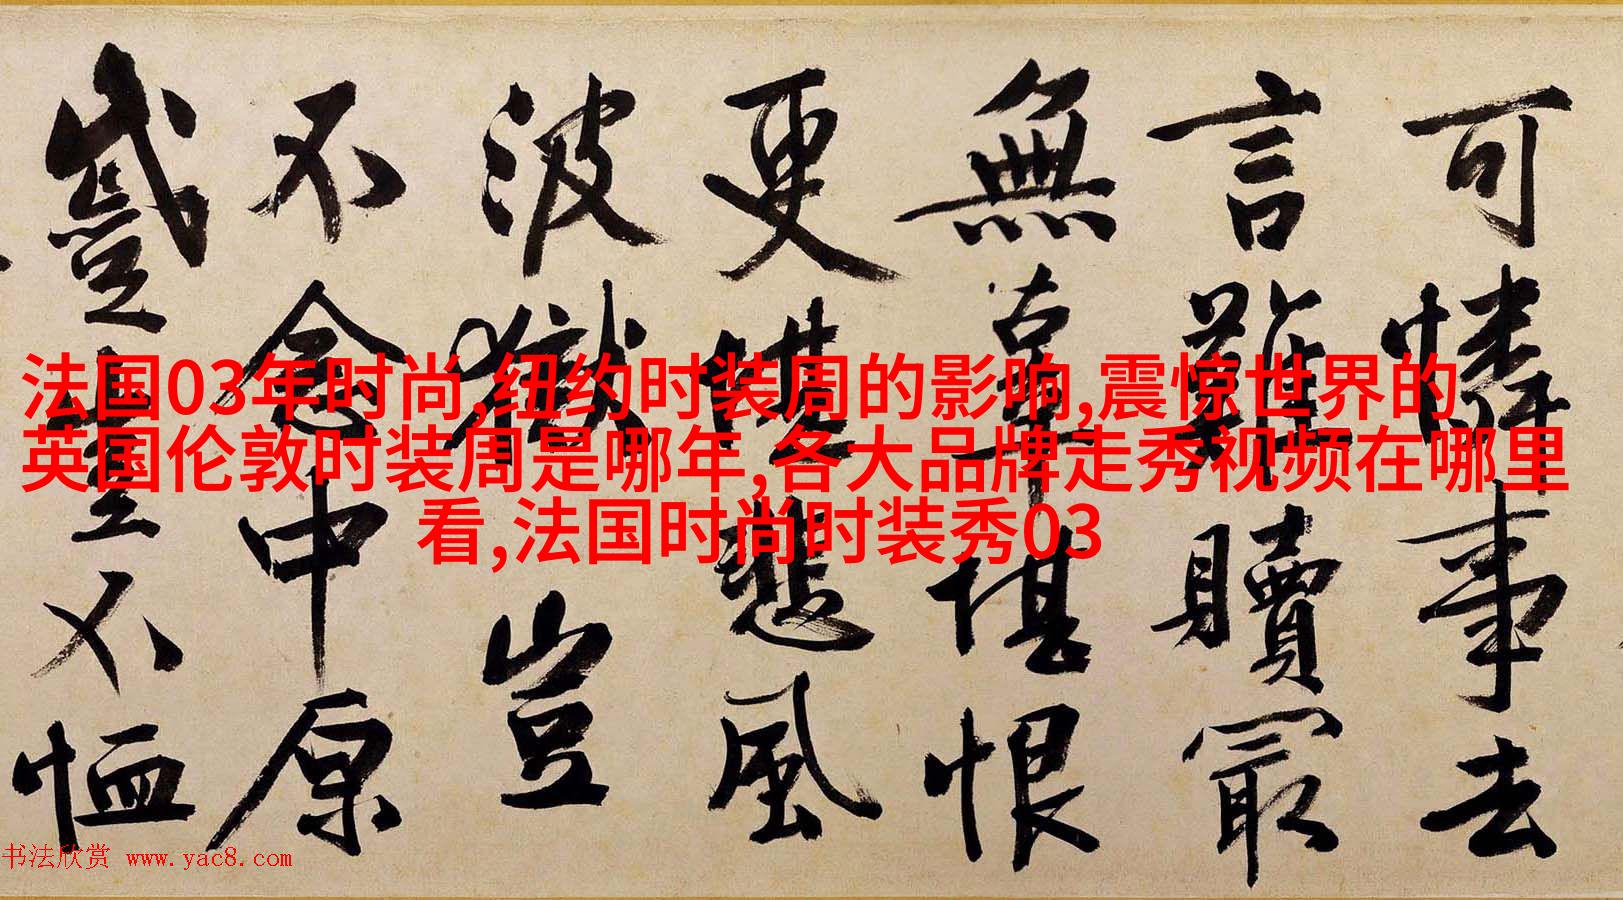 法国03年时尚,纽约时装周的影响,震惊世界的
英国伦敦时装周是哪年,各大品牌走秀视频在哪里
看,法国时尚时装秀03
可憐事去
言難贖最
無辜堪恨
更堪悲風
波獄豈
不念中原
蹙豈不恤
书法欣赏 www.yac8.com